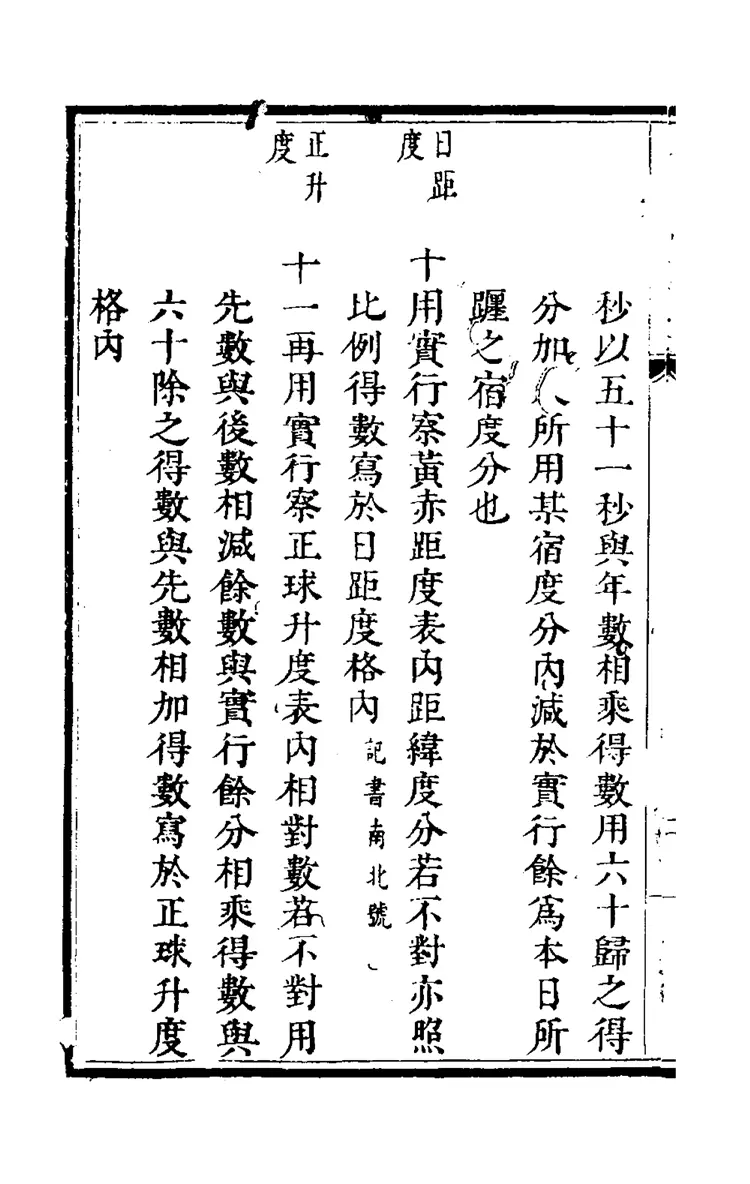 秒以五十一秒與年數相乘得數用六十歸之得
分加入所用某宿度分內減於實行餘爲本日所
躔之宿度分也
日距
度
十用實行察黃赤距度表內距緯度分若不對亦照
比例得數寫於日距度格內記書南北號
正升
度
十一再用實行察正球升度表內相對數若不對用
先數與後數相減餘數與實行餘分相乘得數與
六十除之得數與先數相加得數寫於正球升度
格內